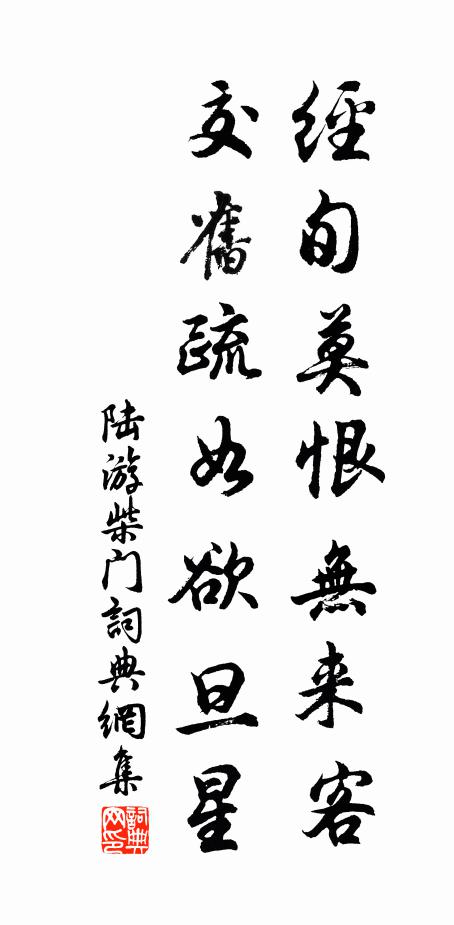 經旬莫恨無来客
交舊疏如欲旦星
陆游柴门詞典網集
詞典网印